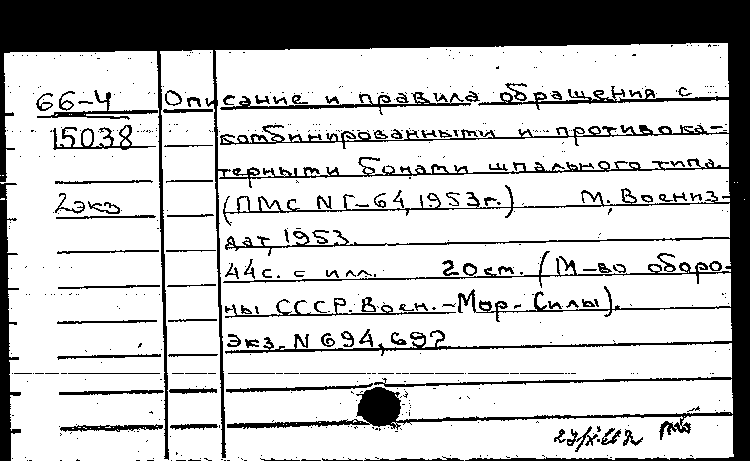 66-4 Описание и правила обращения с
15038 комбинированными и противока-
терными бонами шпального типа.
2экз (ПМС N Г-64, 1953г.) М, Воениз-
дат, 1953.
44с. с илл. 20см. (М-во оборо-
ны СССР. Воен.-Мор. Силы).
Экз. N 694, 697